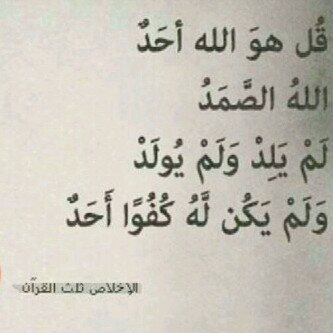 قُل هوَ الله أحَدٌ
اللهُ الصَّمَدُ
لَمْ يَلِدْ وَلَمْ يُولَدْ
وَلَمْ يَكُن لَّهُ كُفُوًا أَحَدٌ
الإخلاص ثلث القرآن